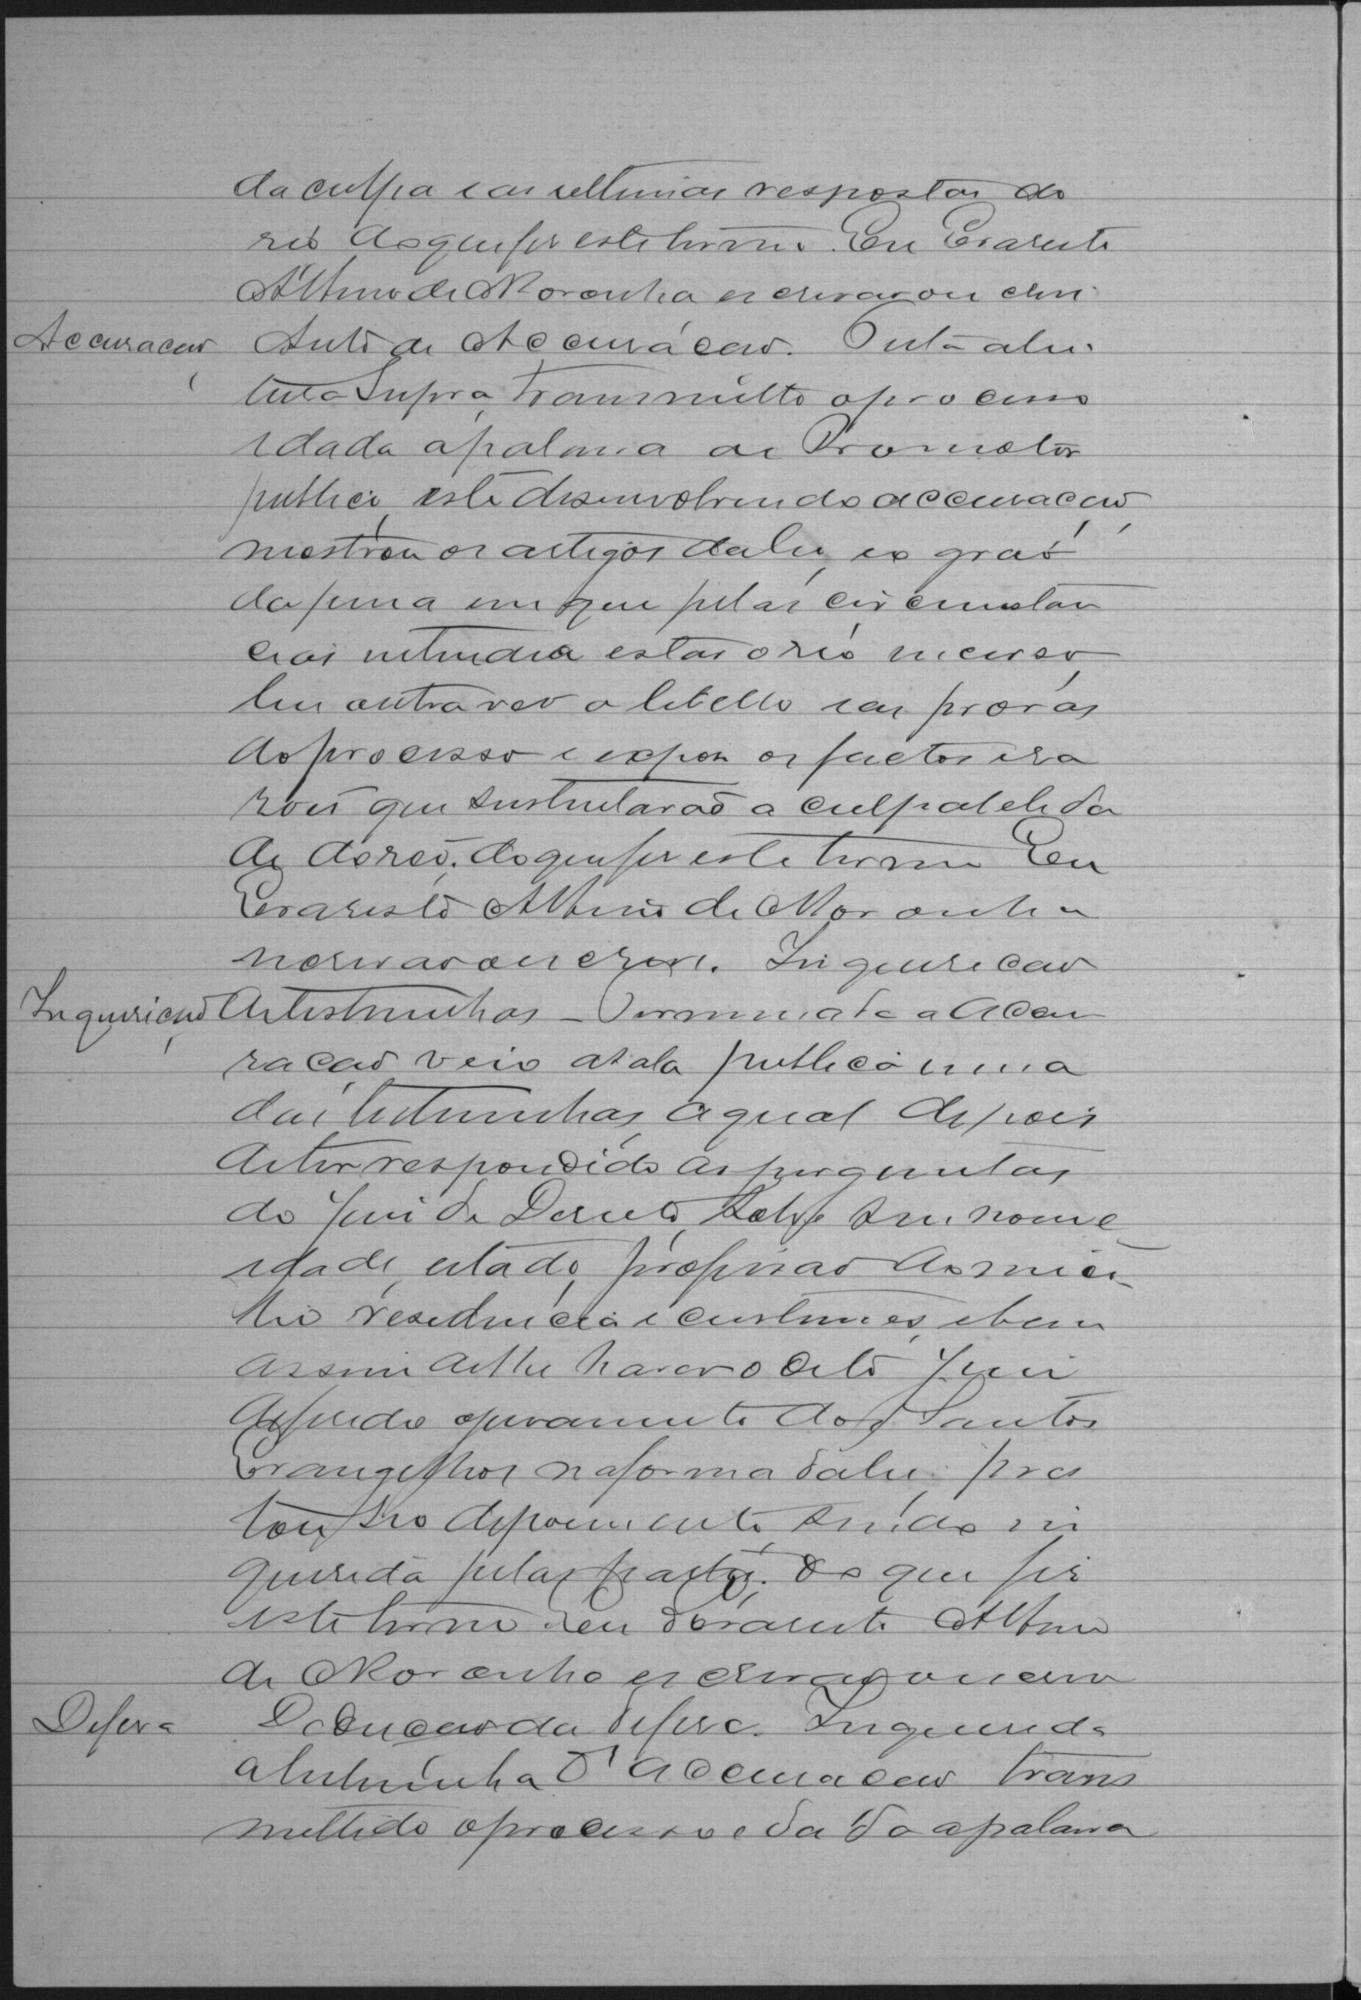 da culpa e as ultimas respostas do
reo do que fis este termo. Eu Evaristo
Albino de Noronha escrivão o escrevi
Accusação Auto de Accusação. Outa aber
tura supra, transmitto o processo
e dada a palavra ao Promotor
publico, este desenvolvendo accusação,
mostrou os artigos da lei, e o grao
da pena em que pelas circumstan
cias entendia estar o reo incurso,
leu outra ves o libello e as provas
do processo e expos os factos e ra
zoes que sustentavão a culpabilida
de do reo, do que fis este termo Eu
Evaristo Albino de Noronha
escrivão o escrevi. Inquirição
Inquirição de testemunhas – Terminada a accu
sação, veio a sala publica uma
das testemunhas, a qual depois
de ter respondido as perguntas
do Juis de Direito, sobre seu nome
idade, estado, profissão domici
lio residencia e custumes, e bem
assim de lhe haver o dito Juis
deferido o juramento dos Santos
Evangelhos na forma da lei, pres
tou seo depoimento, sendo in
querida pelas partes. Do que fis
este termo e eu Evaristo Albino
de Noronha escrivão o escrevi
Defesa Deducção da defesa. Inquerida
a testeminha d'accusacão trans
mettido o processo e dada a palavra